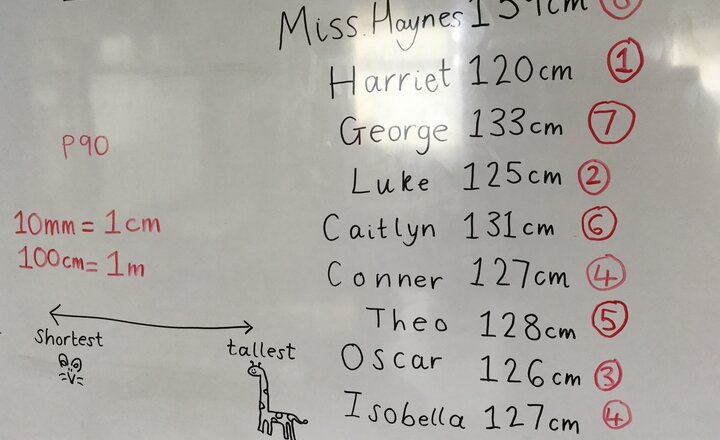 Miss Haynes 159cm 8
Harriet 120cm 1
George 133cm 7
Luke 125cm 2
Caitlyn 131cm 6
Conner 127cm 4
Theo 128cm 5
Oscar 126cm 3
Isobella 127cm 4
P90
10mm = 1cm
100cm = 1m
Shortest
tallest